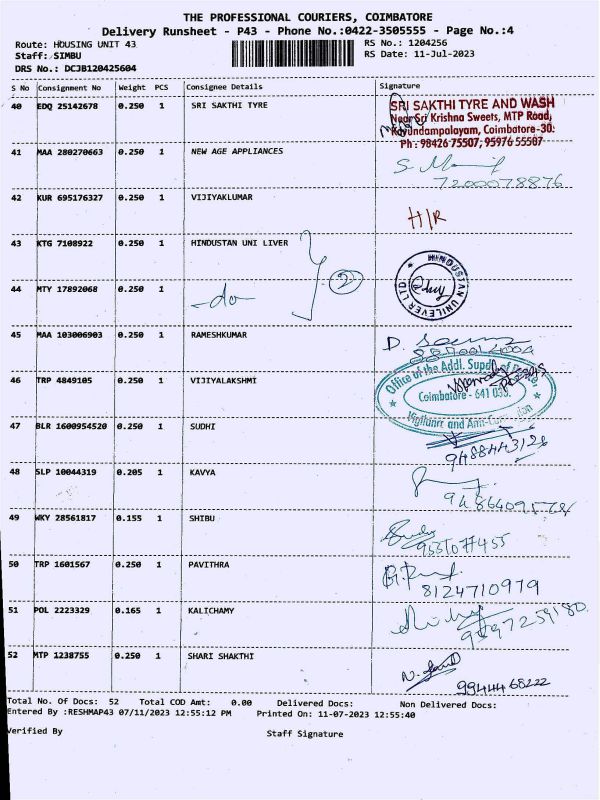 THE PROFESSIONAL COURIERS, COIMBATORE
Delivery Runsheet - P43 - Phone No.:0422-3505555 - Page No.:4
Route: HOUSING UNIT 43 RS No.: 1204256
Staff: SIMBU RS Date: 11-Jul-2023
DRS No.: DCJB120425604
S No Consignment No Weight PCS Consignee Details Signature
40 EDQ 25142678 0.250 1 SRI SAKTHI TYRE
SRI SAKTHI TYRE AND WASH
Near Sri Krishna Sweets, MTP Road,
Kavundampalayam, Coimbatore-30.
Ph : 98426 75507, 95976 55507
41 MAA 280270663 0.250 1 NEW AGE APPLIANCES
7200078876
42 KUR 695176327 0.250 1 VIJIYAKLUMAR
H/R
43 KTG 7108922 0.250 1 HINDUSTAN UNI LIVER
2
HINDUSTAN UNILEVER LTD
44 MTY 17892068 0.250 1 -do-
45 MAA 103006903 0.250 1 RAMESHKUMAR
46 TRP 4849105 0.250 1 VIJIYALAKSHMI
Office of the Addl. Supdt of Police,
Coimbatore - 641 033.
Vigilance and Anti-Corruption
47 BLR 1600954520 0.250 1 SUDHI
9488443126
48 SLP 10044319 0.205 1 KAVYA
49 WKY 28561817 0.155 1 SHIBU
50 TRP 1601567 0.250 1 PAVITHRA
8124710979
51 POL 2223329 0.165 1 KALICHAMY
9597259180
52 MTP 1238755 0.250 1 SHARI SHAKTHI
9944468222
Total No. Of Docs: 52 Total COD Amt: 0.00 Delivered Docs: Non Delivered Docs:
Entered By :RESHMAP43 07/11/2023 12:55:12 PM Printed On: 11-07-2023 12:55:40
Verified By Staff Signature